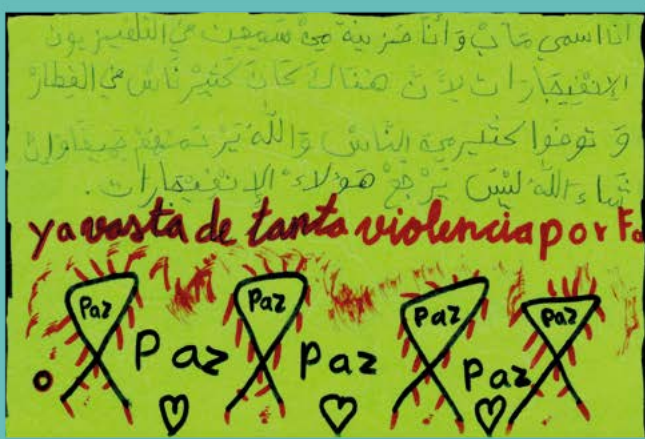 انا اسمي وأنا حزينة سمعت في التلفيزيون
الإنْفِيجَارَات لِأَنَّ هناك كَانَ كَثيْر نَاسْ في القِطَارْ
وَ توفوا كثير النَّاسْ وَاللَّهْ يَرْحَمهُمْ جميعًا وإِن
شاءَ اللَّهْ لَيْسَ يَرْجَعْ هَؤلاءْ الإِنْفيجَارات.
ya vasta de tanta violencia por Fa
Paz Paz Paz Paz
Paz Paz Paz